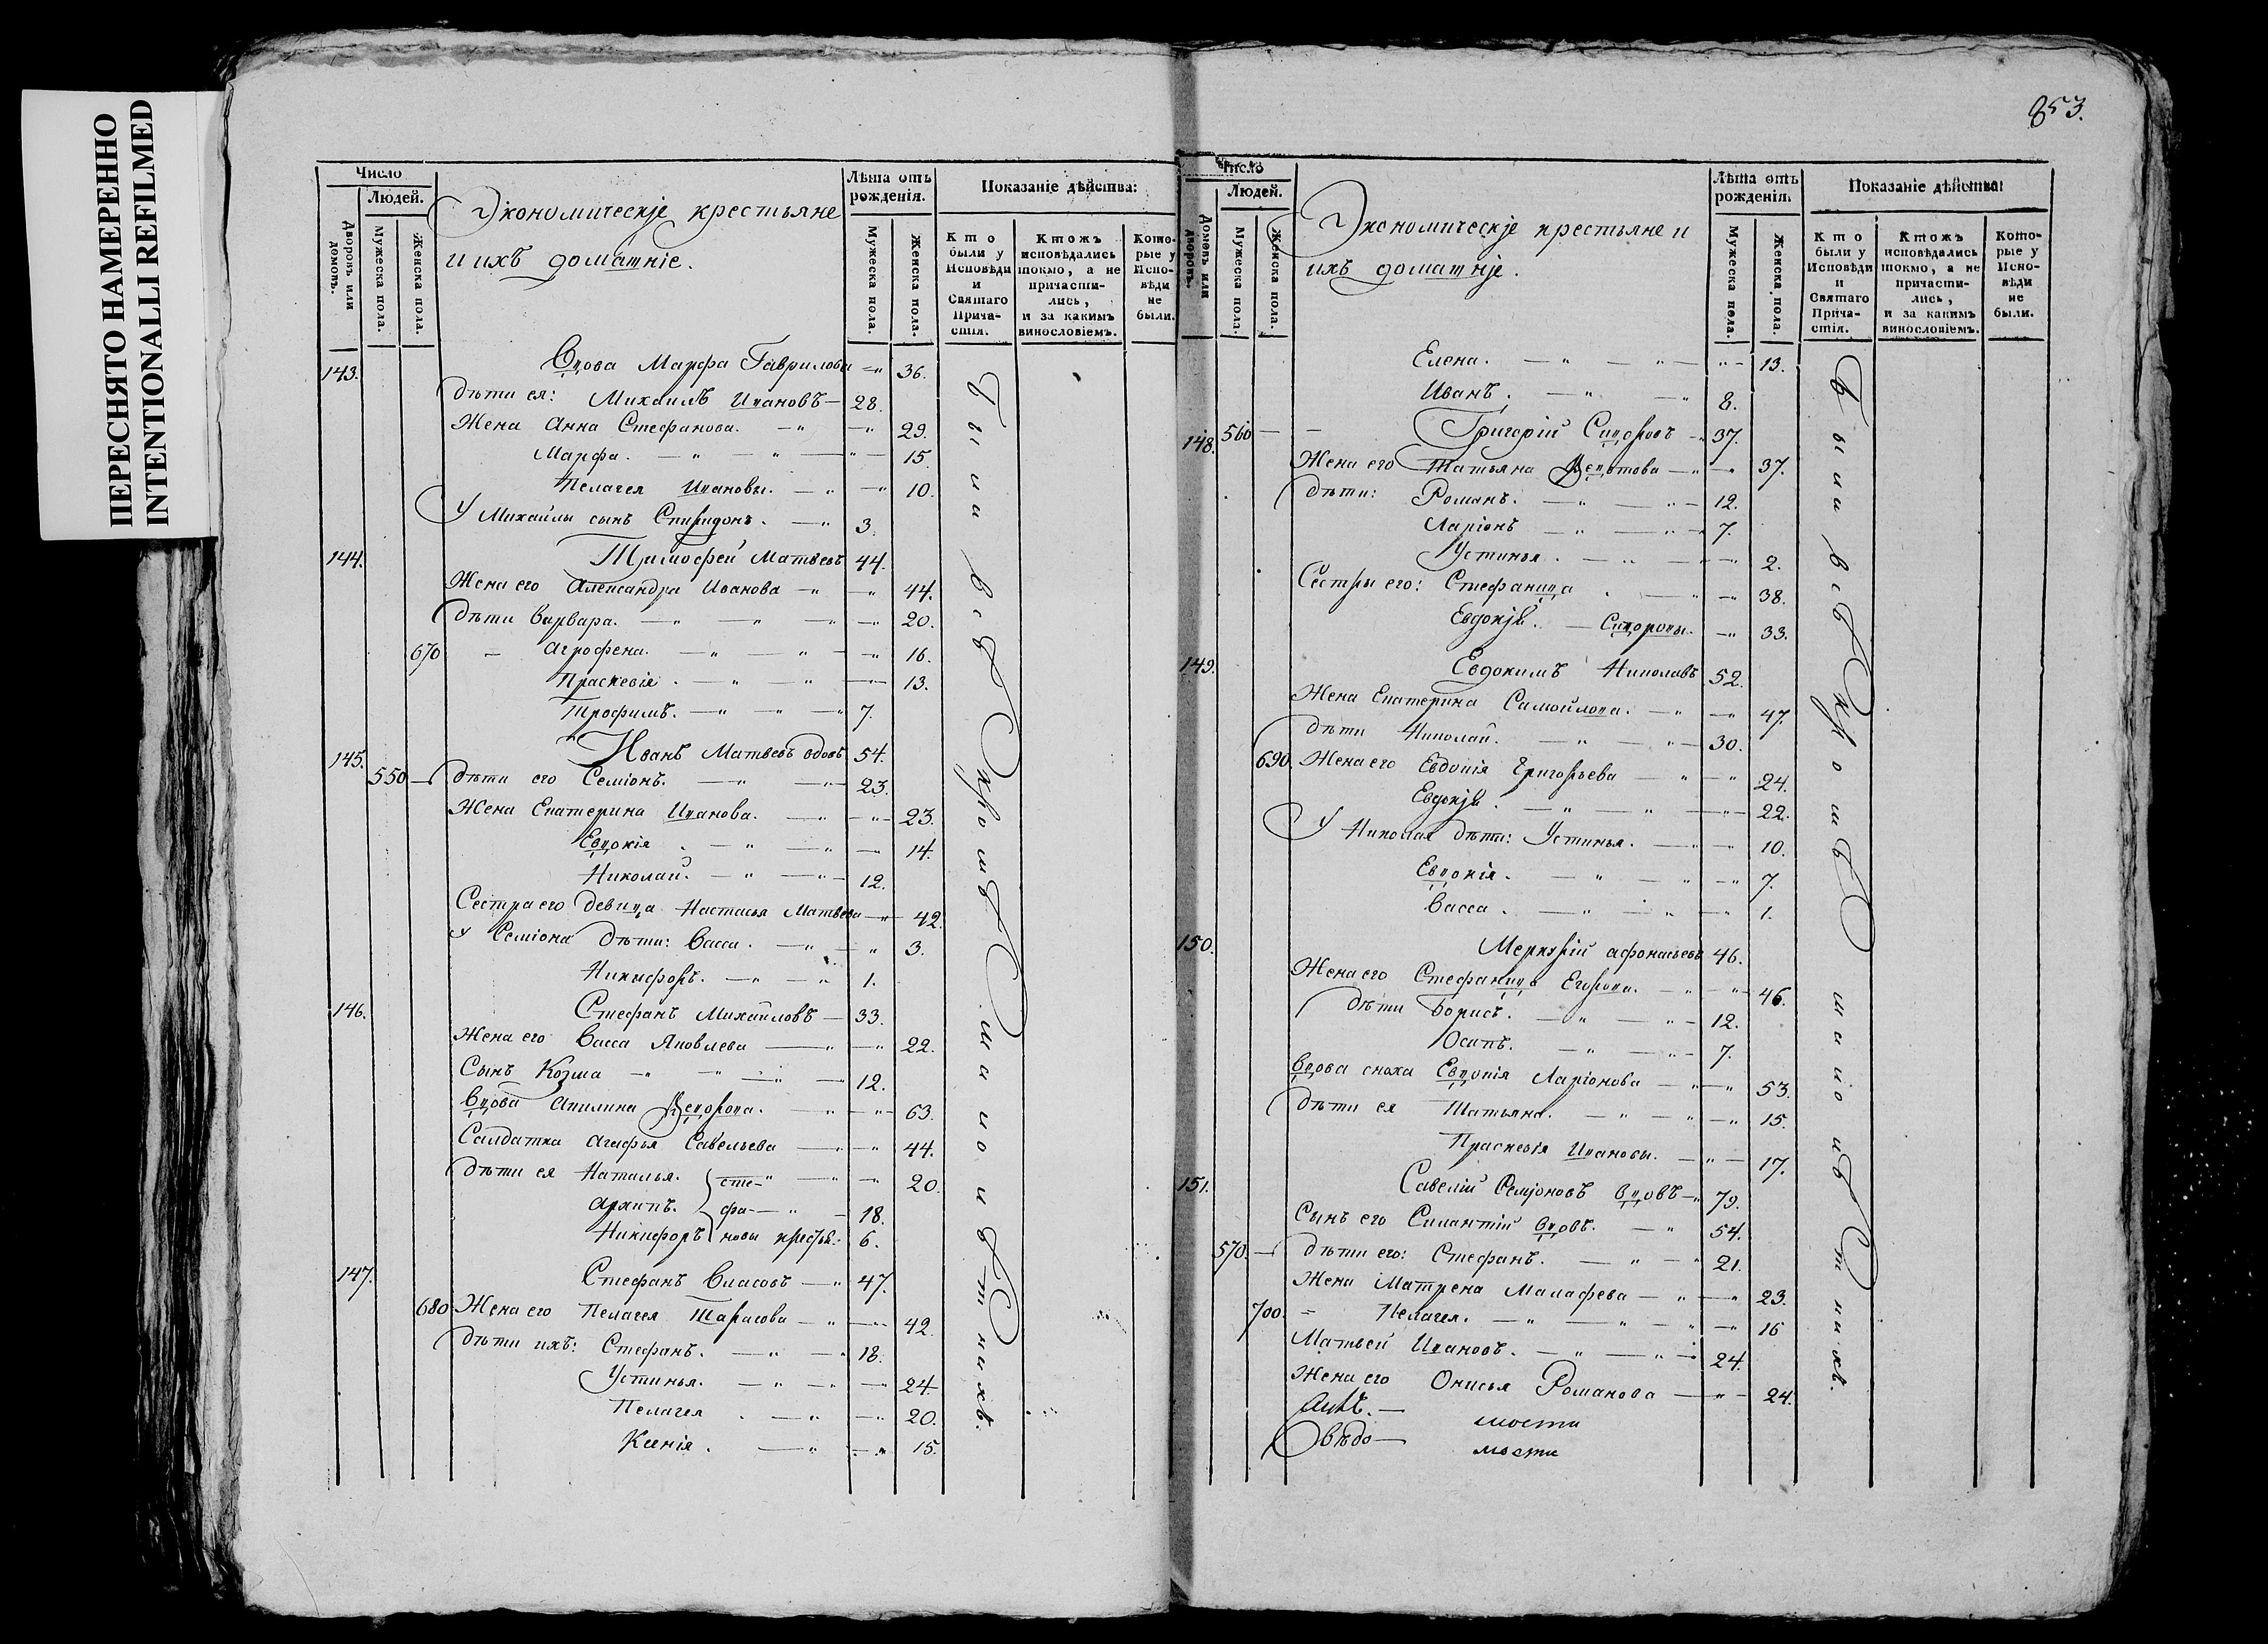 ПЕРЕСНЯТО НАМЕРЕННО
INTENTIONALLI REFILMED
853.
Число
Людей.
Дворовъ или домовъ.
Мужеска пола.
Женска пола.
Экономическіе крестьяне
и ихъ доматніе.
Лѣта отъ рожденія.
Мужеска пола.
Женска пола.
Показаніе дѣйства:
Кто были у Исповѣди и Святаго Причастія.
Ктожъ исповѣдались токмо, а не причастились, и за какимъ винословіемъ.
Которые у Исповѣди не были.
143. Вдова Марфа Гаврилова 36.
Дѣти ея: Михаилъ Ивановъ 28.
Жена Анна Стефанова. 29.
Марфа. 15.
Пелагея Ивановы. 10.
У Михайлы сынъ Спиридонъ. 3.
144. Тимофей Матвеевъ 44.
Жена его Александра Иванова 44.
Дѣти Варвара. 20.
670 Агрофена. 16.
Праскевія. 13.
Трофимъ. 7.
145. Иванъ Матвеевъ вдовъ 54.
550 Дѣти его Семіонъ. 23.
Жена Екатерина Иванова. 23.
Евдокія. 14.
Николай. 12.
Сестра его девица Настасья Матвеева 42.
У Семіона дѣти: Васса. 3.
Никифоръ. 1.
146. Стефанъ Михайловъ 33.
Жена его Васса Яковлева 22.
Сынъ Козма 12.
Вдова Акилина Федорова. 63.
Салдатка Агафья Савельева 44.
Дѣти ея Наталья. сте- 20.
Архипъ. фа- 18.
Никифоръ новы крестья: 6.
147. Стефанъ Власовъ 47.
680 Жена его Пелагея Тарасова 42.
Дѣти ихъ: Стефанъ. 18.
Устинья. 24.
Пелагея. 20.
Ксенія. 15.
Были всѣ кромѣ малолѣтнихъ.
Число
Людей.
Домовъ или Дворовъ.
Мужеска пола.
Женска пола.
Экономическіе крестьяне и
ихъ доматніе.
Лѣта отъ рожденія.
Мужеска пола.
Женска пола.
Показаніе дѣйства:
Кто были у Исповѣди и Святаго Причастія.
Ктожъ исповѣдались токмо, а не причастились, и за какимъ винословіемъ.
Которые у Исповѣди не были.
Елена. 13.
Иванъ. 8.
148. 560 Григорій Сидоровъ 37.
Жена его Татьяна Федотова 37.
Дѣти: Романъ. 12.
Ларіонъ 7.
Устинья. 2.
Сестры его: Стефанида 38.
Евдокія. Сидоровы. 33.
149. Евдокимъ Николаевъ 52.
Жена Екатерина Самойлова. 47.
Дѣти Николай. 30.
690. Жена его Евдокія Григорьева 24.
Евдокія. 22.
У Николая дѣти: Устинья. 10.
Евдокія. 7.
Васса. 1.
150. Меркурій Афонасьевъ 46.
Жена его Стефанида Егорова. 46.
Дѣти Борисъ. 12.
Осипъ. 7.
Вдова сноха Евдокія Ларіонова 53.
Дѣти ея Татьяна. 15.
Праскевія Ивановы. 17.
151. Савелій Семіоновъ вдовъ 79.
Сынъ его Силантій вдовъ. 54.
570. Дѣти его: Стефанъ. 21.
Жена Матрена Малафеева 23.
700. Пелагея. 16
Матвей Ивановъ. 24.
Жена его Онисья Романова 24.
мости
вѣдо мости
Были всѣ кромѣ малолѣтнихъ.